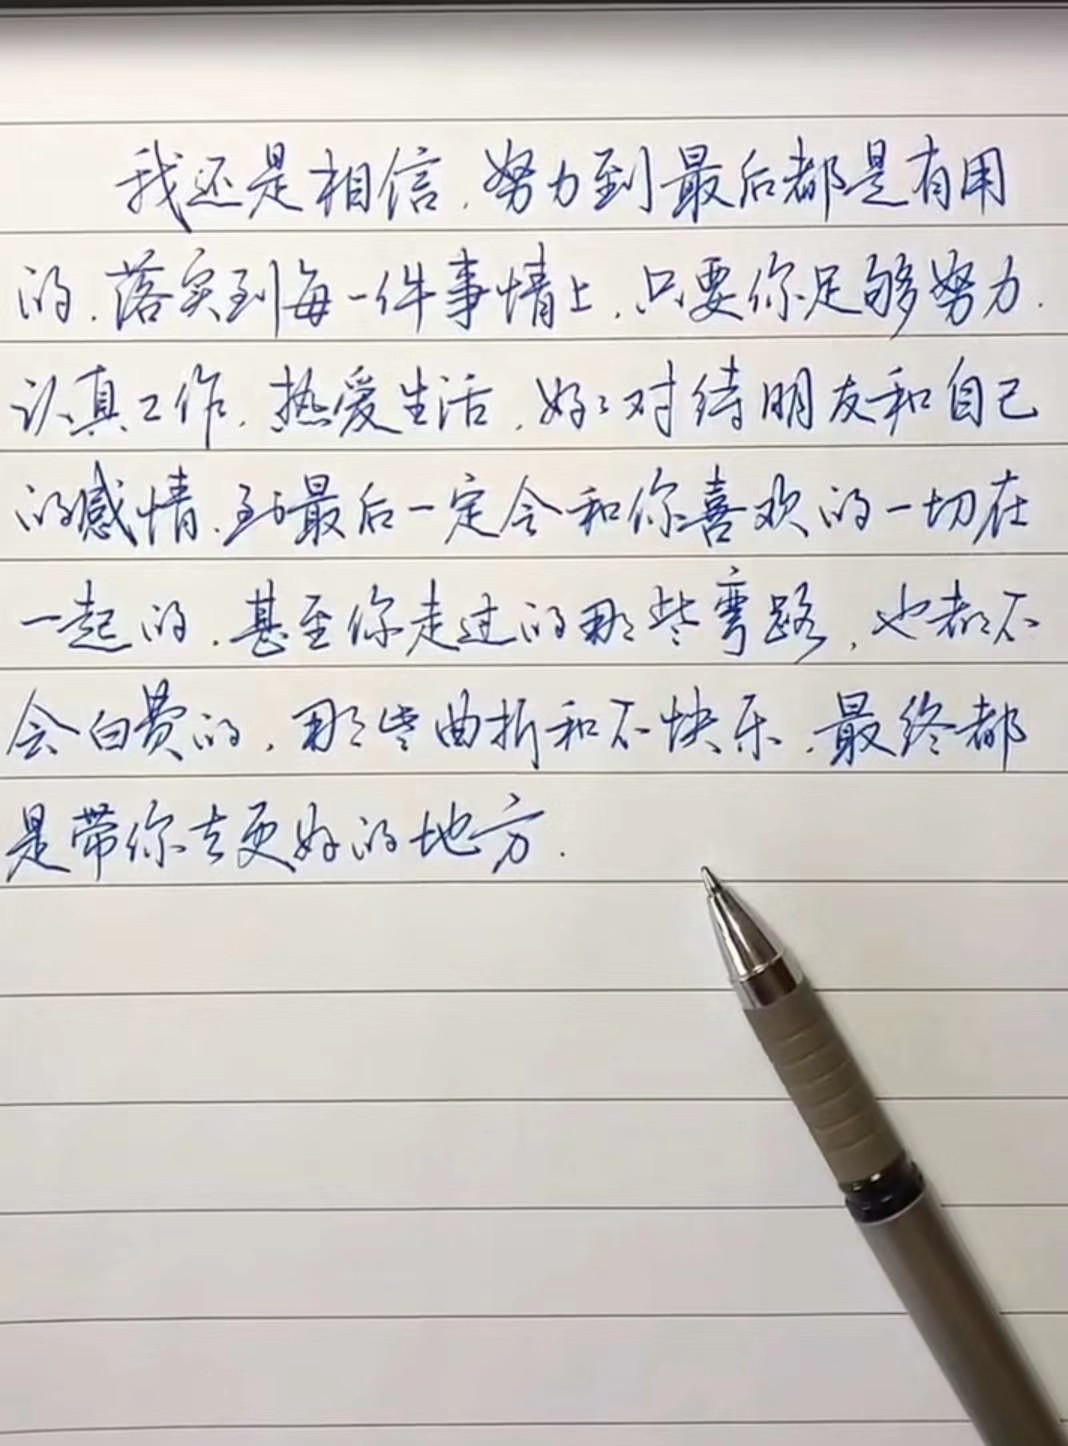 我还是相信.努力到最后都是有用
的.落实到每一件事情上.只要你足够努力.
认真工作.热爱生活.好好对待朋友和自己
的感情.到最后一定会和你喜欢的一切在
一起的.甚至你走过的那些弯路,也都不
会白费的,那些曲折和不快乐.最终都
是带你去更好的地方.